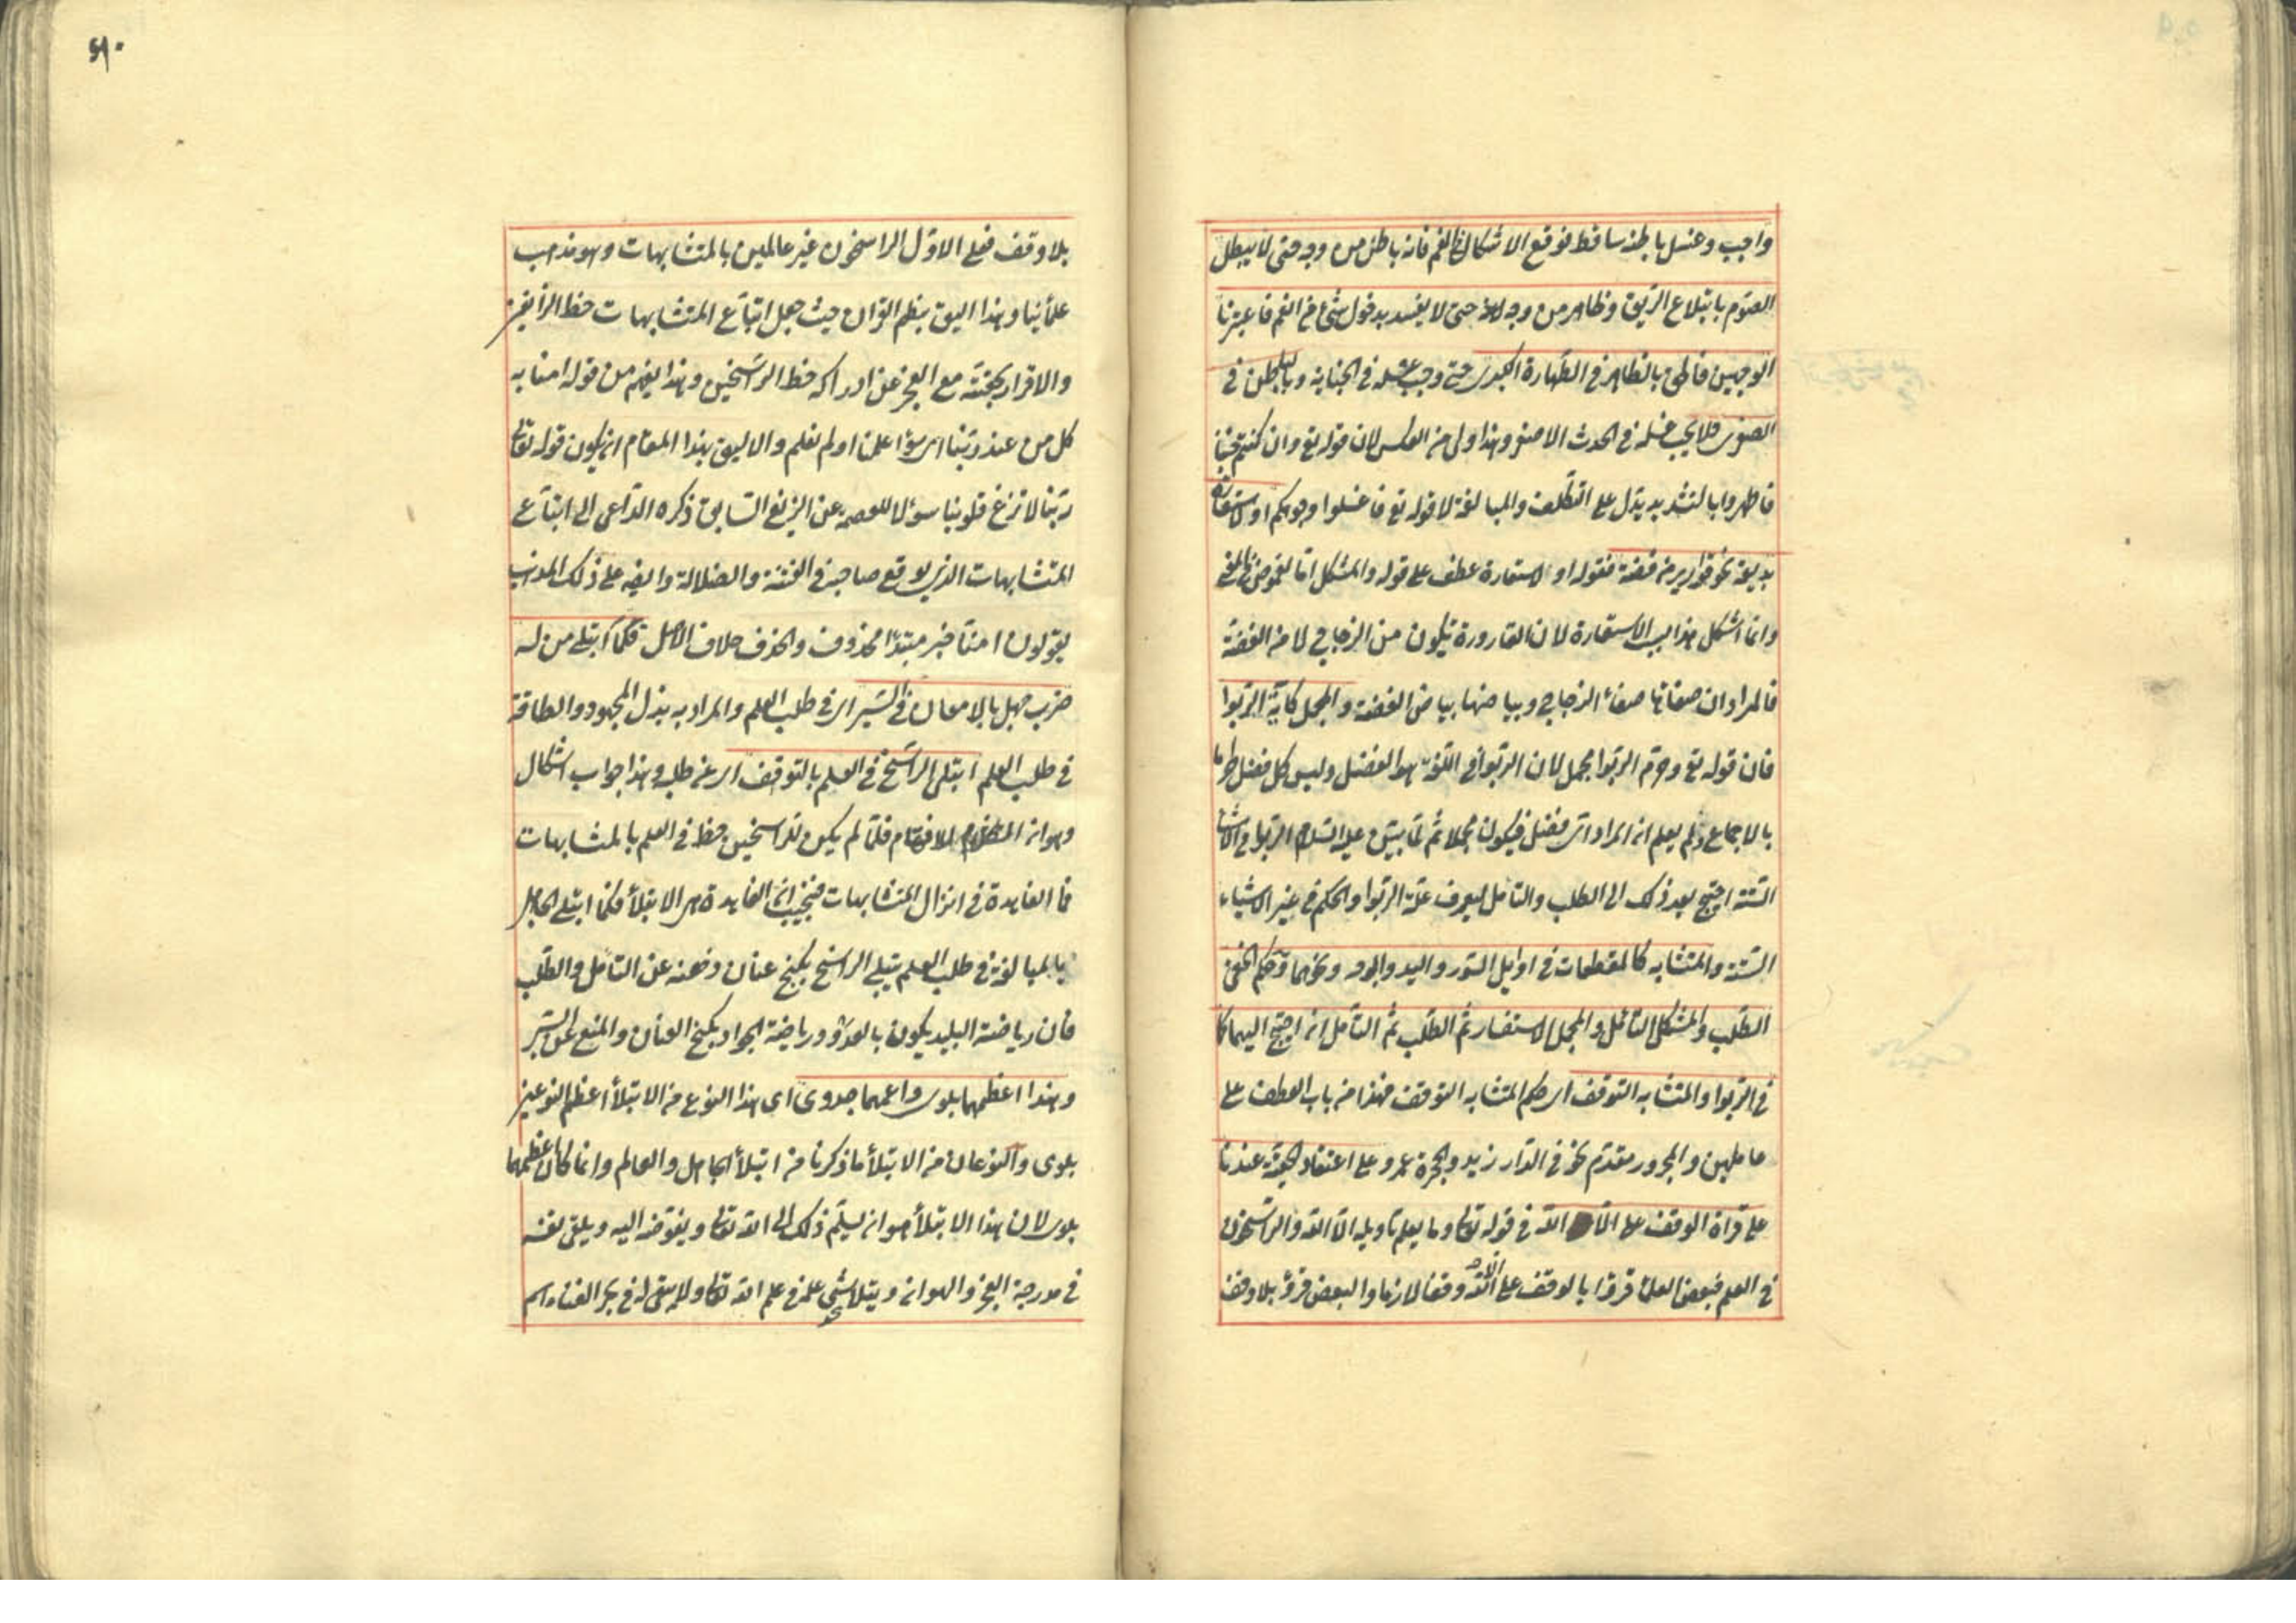 واجب وغسل باطنه ساقط فوقع الاشكال فى الفم فانه باطن من وجه حتى لا يبطل
الصوم بابتلاع الريق وظاهر من وجه حتى لا يفسد بدخول شئ فى الفم فاعتبرنا
الوجهين فالحق بالظاهر فى الطهارة الكبرى حتى وجب غسله فى الجنابة وبالباطن فى
الصغرى فلا يجب غسله فى الحدث الاصغر وهذا اولى من العكس لان قوله تع وان كنتم جنبا
فاطهروا بالتشديد يدل على التكلف والمبالغة لا قوله تع فاغسلوا وجوهكم او لاستعارة
بديعة نحو قوارير من فضة فقوله او لاستعارة عطف على قوله والمشكل اما لغموض فى المعنى
وانما اشكل هذا بسبب الاستعارة لان القارورة تكون من الزجاج لا من الفضة
فالمراد ان صفائها صفاء الزجاج وبياضها بياض الفضة والمجمل كاية الربوا
فان قوله تع وحرم الربوا مجمل لان الربوا فى اللغة هو الفضل وليس كل فضل حراما
بالاجماع ولم يعلم ان المراد اى فضل فيكون مجملا ثم لما بين عليه السلام الربوا فى الاشياء
الستة احتيج بعد ذلك الى الطلب والتامل ليعرف علة الربوا والحكم فى غير الاشياء
الستة والمتشابه كالمقطعات فى اوايل السور واليد والوجه ونحوهما وحكم الخفى
الطلب والمشكل التامل والمجمل الاستفسار ثم الطلب ثم التامل ان احتيج اليهما كما
فى الربوا والمتشابه التوقف اى حكم المتشابه التوقف فهذا من باب العطف على
عاملين والمجرور مقدم نحو فى الدار زيد والحجرة عمرو على اعتقاد الحقية عندنا
على قراة الوقف على الا الله فى قوله تعالى وما يعلم تاويله الا الله والراسخون
فى العلم فبعض العلماء قروا بالوقف على الا الله وقفا لازما والبعض قروا بلا وقف
٥٩٠
بلا وقف فعلى الاول الراسخون غير عالمين بالمتشابهات وهو مذهب
علمائنا وهذا اليق بنظم القران حيث جعل اتباع المتشابهات حظ الزايغين
والاقرار بحقيته مع العجز عن ادراكه حظ الراسخين وهذا يفهم من قوله امنا به
كل من عند ربنا اى سواء علمنا او لم نعلم والاليق بهذا المقام ان يكون قوله تعالى
ربنا لا تزغ قلوبنا سوالا للعصمة عن الزيغ السابق ذكره الداعى الى اتباع
المتشابهات الذى يوقع صاحبه فى الفتنة والضلالة وايضا على ذلك المذهب
يقولون امنا خبر مبتدأ محذوف والحذف خلاف الاصل فكما ابتلى من له
ضرب جهل بالامعان فى السير اى فى طلب العلم والمراد به بذل المجهود والطاقة
فى طلب العلم ابتلى الراسخ فى العلم بالتوقف اى عن طلبه وهذا جواب اشكال
وهو ان الكلام للافهام فلما لم يكن للراسخين حظ فى العلم بالمتشابهات
فما الفايدة فى انزال المتشابهات فنجيب ان الفايدة هى الابتلأ فكما ابتلى الجاهل
بالمبالغة فى طلب العلم يبتلى الراسخ بكبح عنان ذهنه عن التامل والطلب
فان رياضة البليد يكون بالعدو ورياضة الجواد بكبح العنان والمنع عن السير
وهذا اعظمهما بلوى واعمهما جدوى اى هذا النوع من الابتلأ اعظم النوعين
بلوى والنوعان من الابتلأ ما ذكرنا من ابتلأ الجاهل والعالم وانما كان اعظمهما
بلوى لان هذا الابتلأ هو ان يسلم ذلك الى الله تعالى ويفوضه اليه ويلقى نفسه
فى مدرجة العجز والهوان ويتلاشى علمه فى علم الله تعالى ولا يبقى له فى بحر الفناء اسم